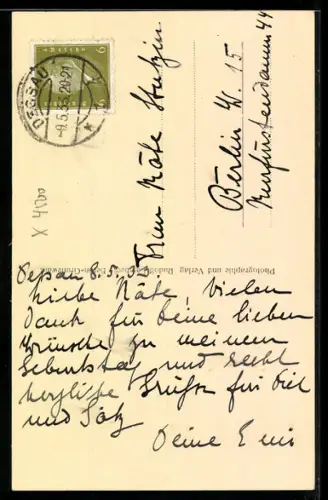 DESSAU
9.5.33.20-21
Frau Käte Stutzin
Berlin W. 15
Kurfürstendamm 44
X 4500
Photographie und Verlag Berlin-Grunewald
Dessau 8.5.33.
Liebe Käte, Vielen
Dank für Deine lieben
Wünsche zu meinem
Geburtstag und recht
herzliche Grüße für Dich
und
Deine